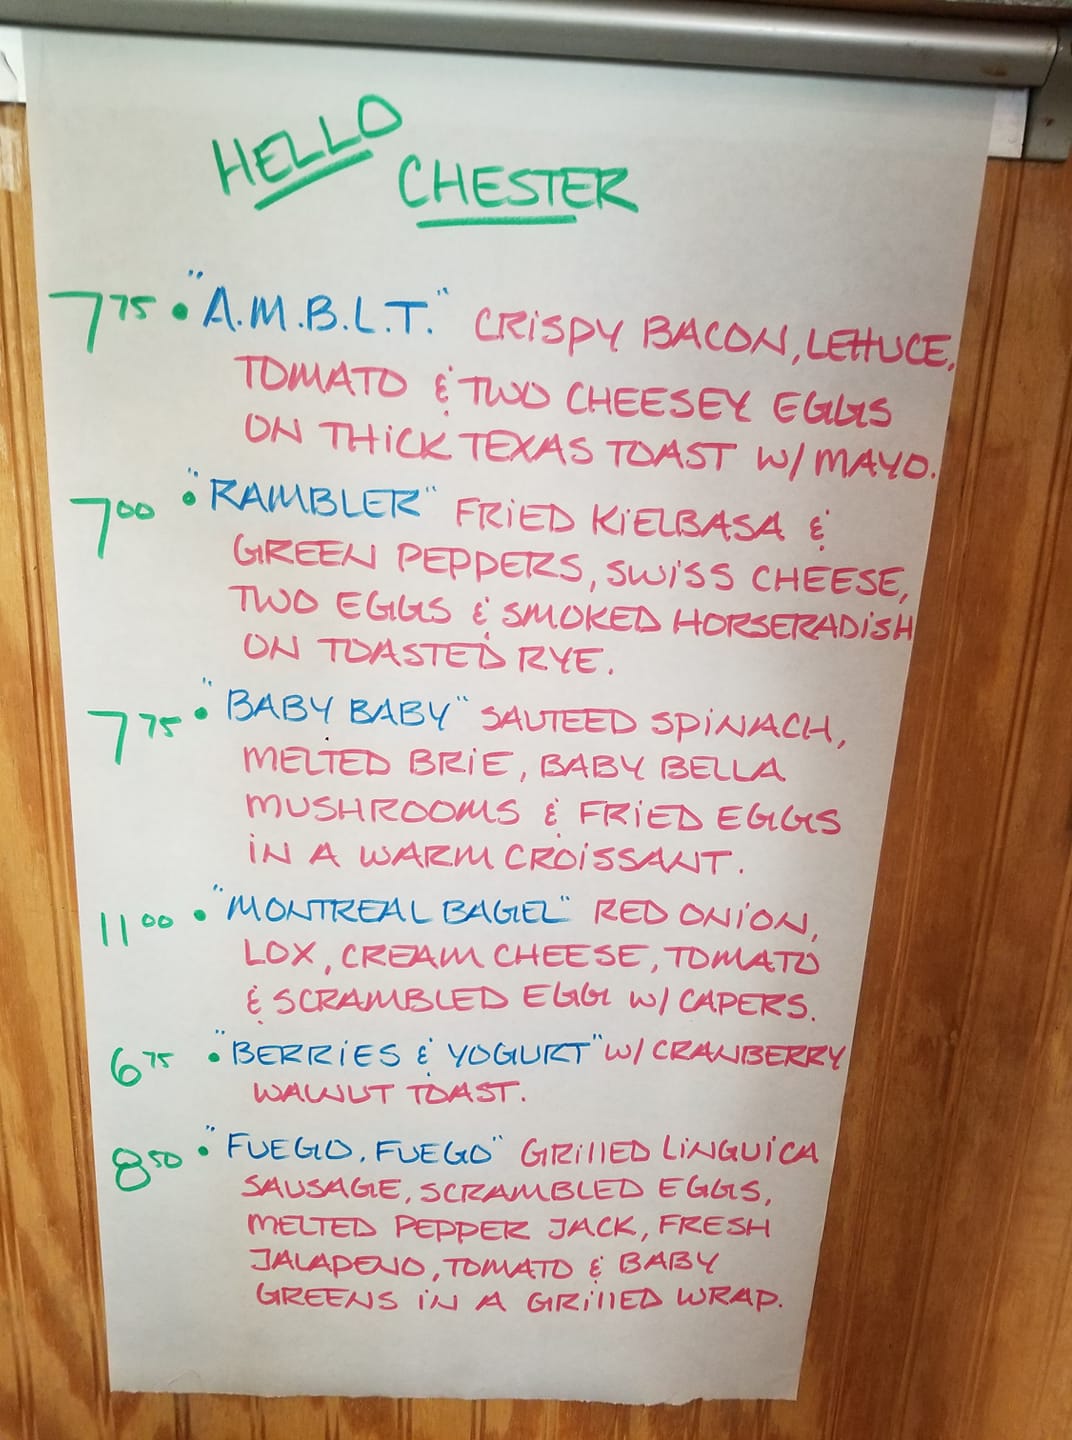 HELLO
CHESTER
7 75 • "A.M.B.L.T." CRISPY BACON, LETTUCE,
TOMATO & TWO CHEESEY EGGS
ON THICK TEXAS TOAST W/ MAYO.
7 00 • "RAMBLER" FRIED KIELBASA &
GREEN PEPPERS, SWISS CHEESE,
TWO EGGS & SMOKED HORSERADISH
ON TOASTED RYE.
7 75 • "BABY BABY" SAUTEED SPINACH,
MELTED BRIE, BABY BELLA
MUSHROOMS & FRIED EGGS
IN A WARM CROISSANT.
11 00 • "MONTREAL BAGEL" RED ONION,
LOX, CREAM CHEESE, TOMATO
& SCRAMBLED EGG W/ CAPERS.
6 75 • "BERRIES & YOGURT" W/ CRANBERRY
WALNUT TOAST.
8 50 • "FUEGO, FUEGO" GRILLED LINGUICA
SAUSAGE, SCRAMBLED EGGS,
MELTED PEPPER JACK, FRESH
JALAPENO, TOMATO & BABY
GREENS IN A GRILLED WRAP.